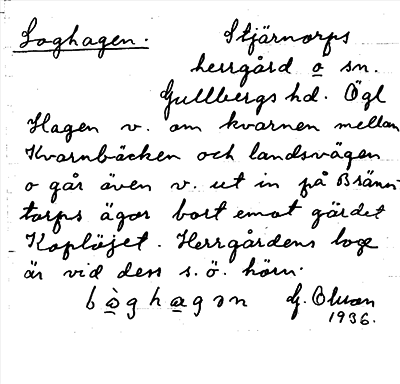 Loghagen.
Stjärnorps
herrgård o sn.
Gullbergs hd. Ögl
Hagen v. om kvarnen mellan
Kvarnbäcken och landsvägen
o går även v. ut in på Bränn-
torps ägor bort emot gärdet
Koplöjet. Herrgårdens loge
är vid dess s. ö. hörn.
lòghagən G. Olson
1936.